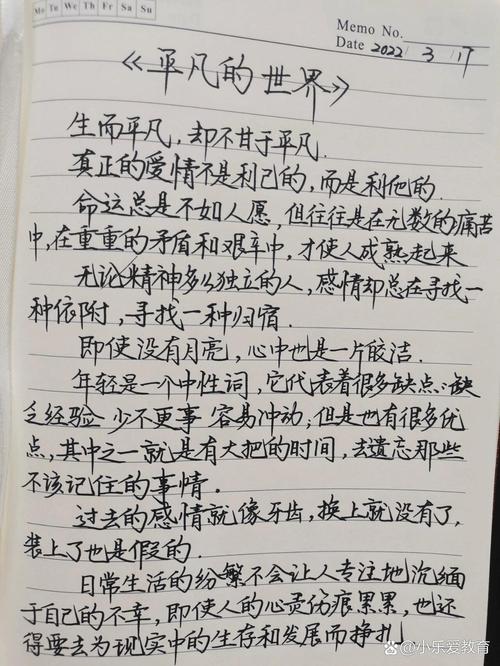 Mo Tu We Th Fr Sa Su
Memo No.
Date 2022 / 3 / 17
《平凡的世界》
生而平凡，却不甘于平凡.
真正的爱情不是利己的，而是利他的.
命运总是不如人愿，但往往是在无数的痛苦
中，在重重的矛盾和艰辛中，才使人成熟起来
无论精神多么独立的人，感情却总在寻找一
种依附，寻找一种归宿.
即使没有月亮，心中也是一片皎洁.
年轻是一个中性词，它代表着很多缺点：缺
乏经验 少不更事 容易冲动；但是也有很多优
点，其中之一就是有大把的时间，去遗忘那些
不该记住的事情.
过去的感情就像牙齿，换上就没有了，
装上了也是假的.
日常生活的纷繁不会让人专注地沉缅
于自己的不幸，即使人的心灵伤痕累累，也还
得要去为现实中的生存和发展而挣扎.
@小乐爱教育